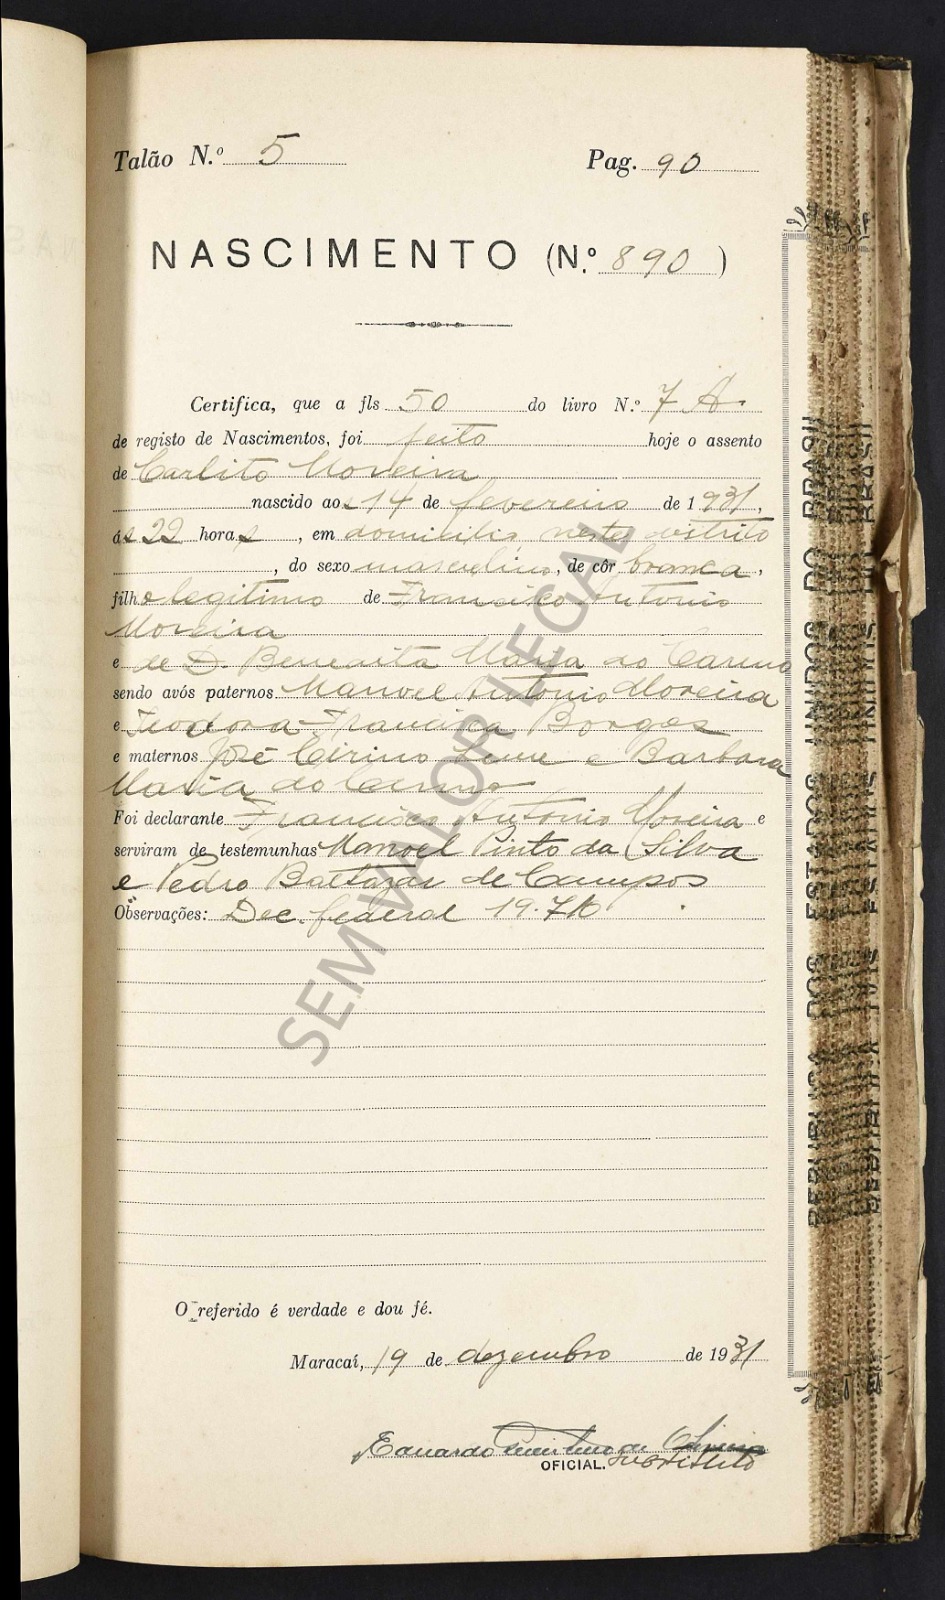 Talão N.º 5 Pag. 90
NASCIMENTO (N.º 890)
Certifica, que a fls 50 do livro N.º 7 A.
de registo de Nascimentos, foi feito hoje o assento
de Carlito Moreira
nascido aos 14 de fevereiro de 1931,
ás 22 horas, em domicilio, neste distrito
, do sexo masculino, de côr branca,
filho legitimo de Francisco Antonio
Moreira
e de D. Benedita Maria do Carmo
sendo avós paternos Manoel Antonio Moreira
e Teodora Francisca Borges
e maternos José Cirino Leme e Barbara
Maria do Carmo
Foi declarante Francisco Antonio Moreira e
serviram de testemunhas Manoel Pinto da Silva
e Pedro Baltazar de Campos
Observações: Dec. federal 19.710
SEM VALOR LEGAL
O referido é verdade e dou fé.
Maracaí, 19 de dezembro de 1931
Eduardo de Oliveira
OFICIAL. substituto
REPUBLICA DOS ESTADOS UNIDOS DO BRASIL